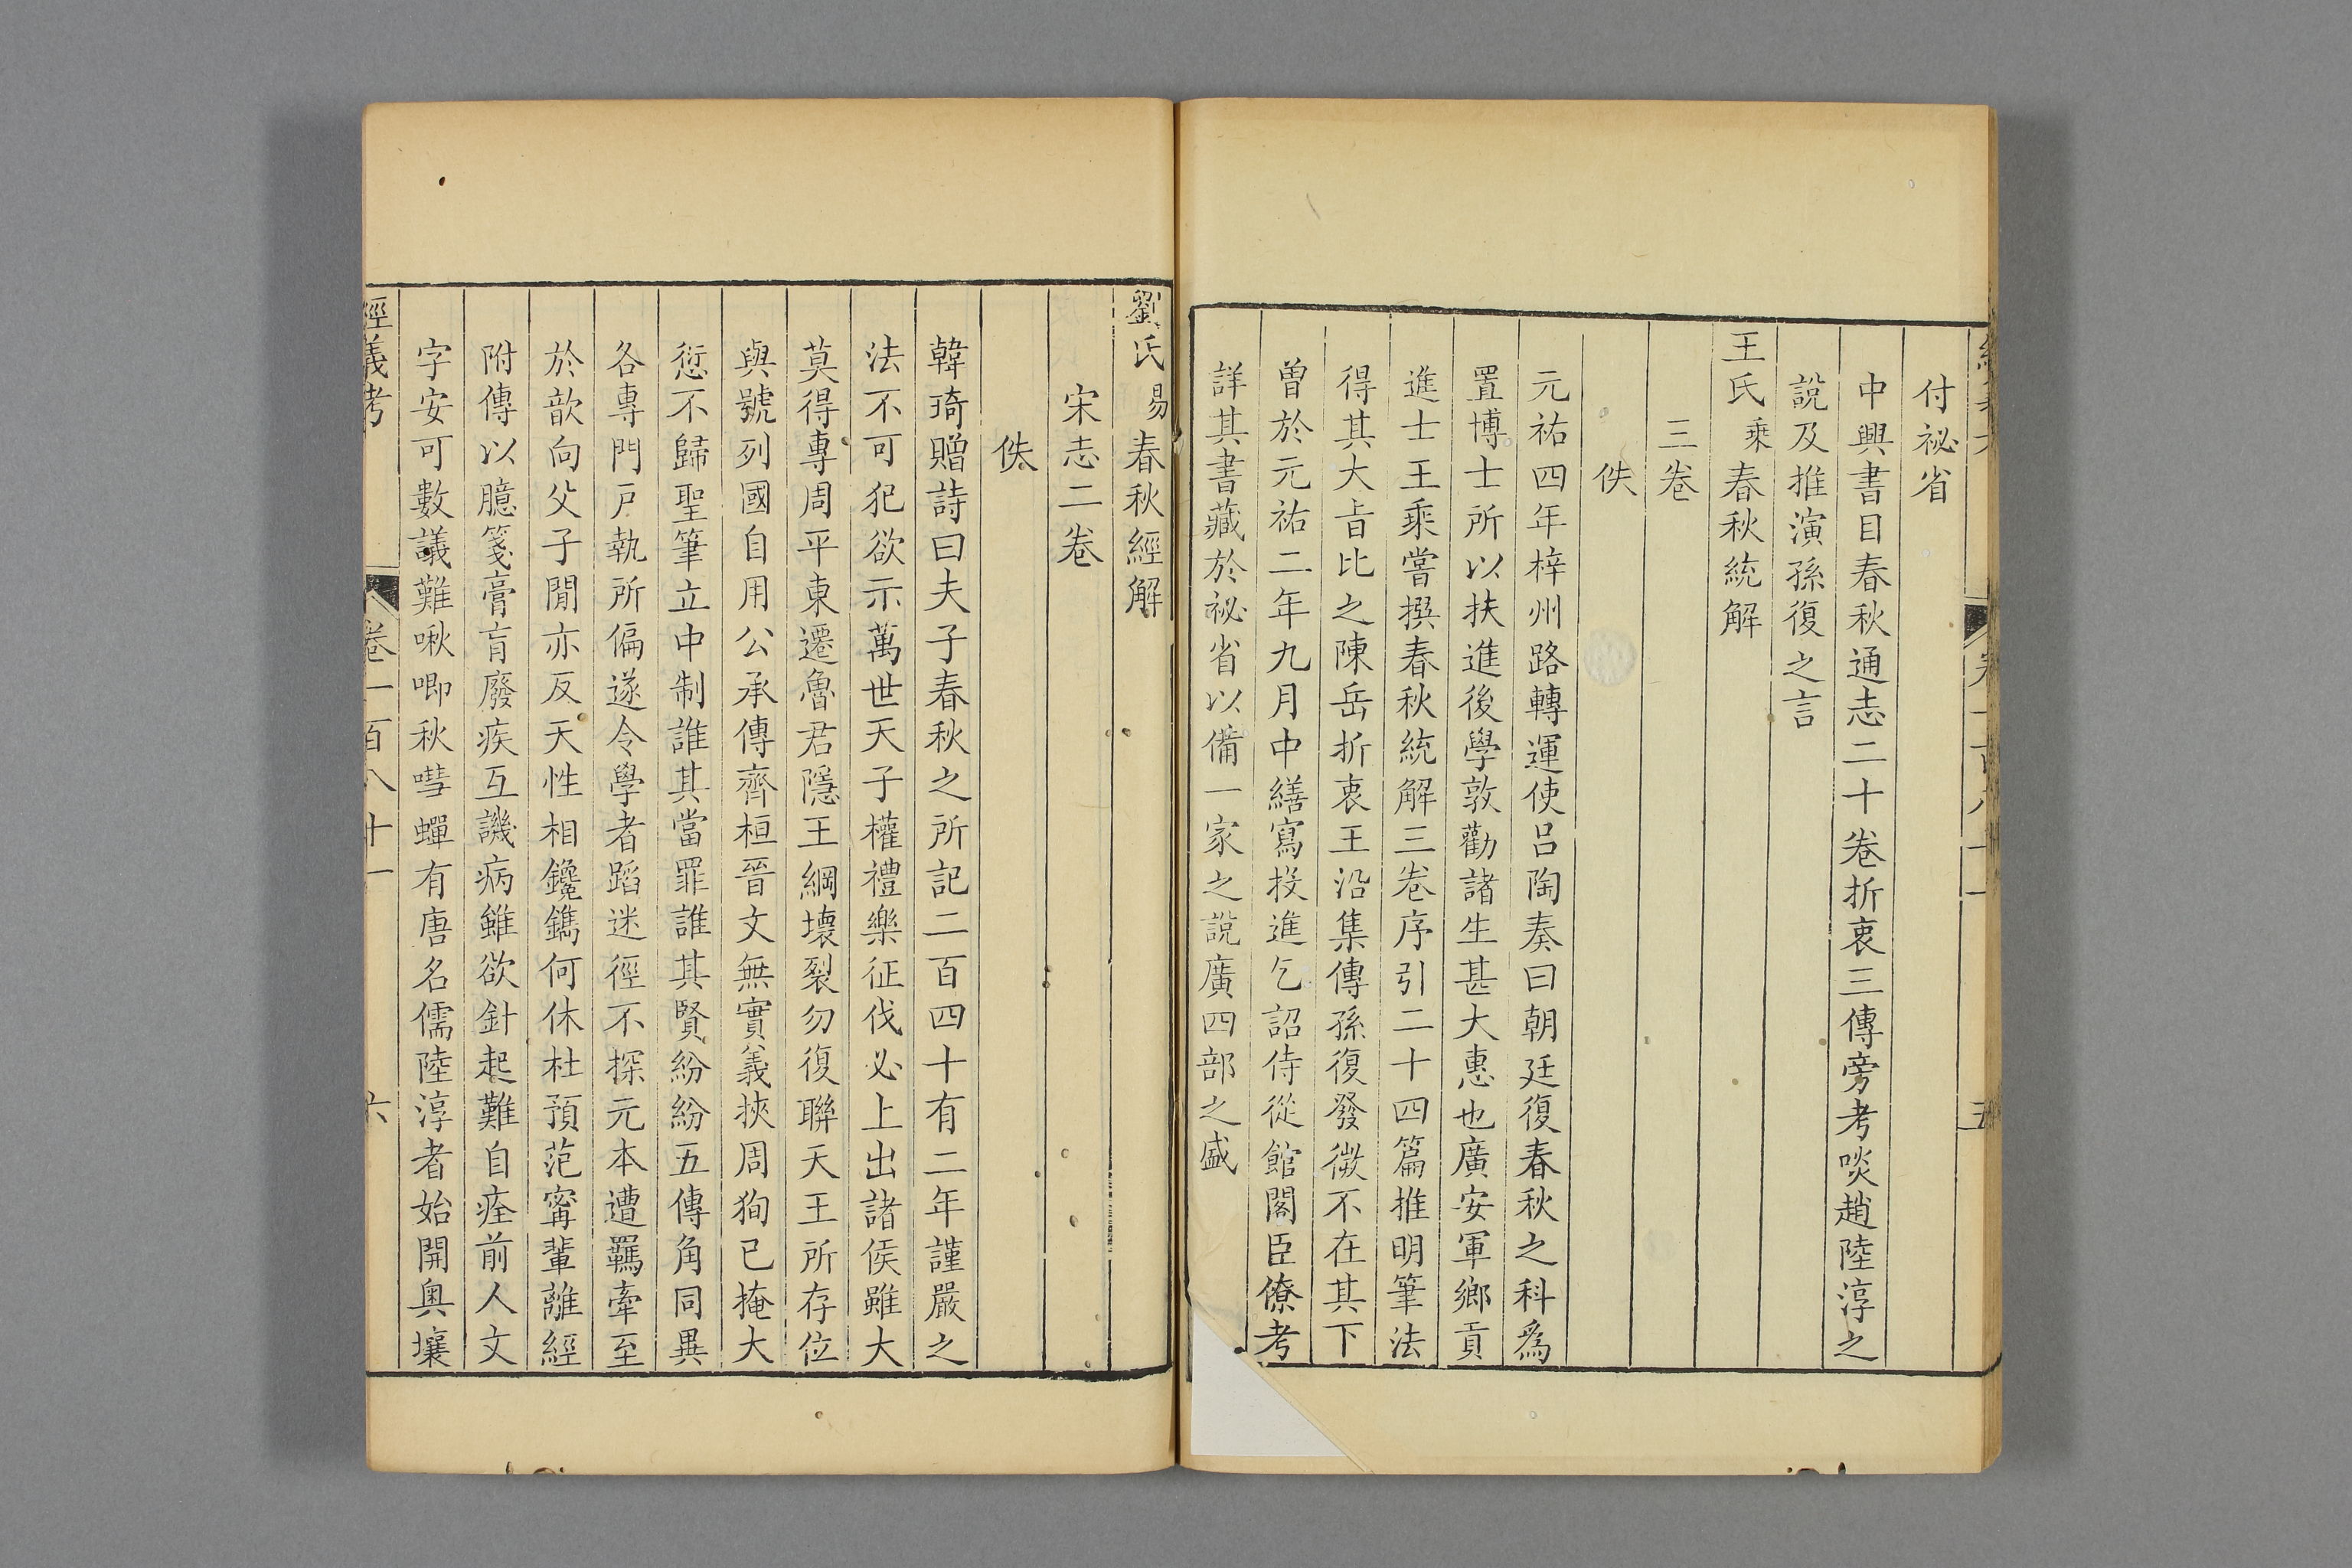 付祕省
中興書目春秋通志二十卷折衷三傳旁考啖趙陸淳之
說及推演孫復之言
王氏乘春秋統解
三卷
佚
元祐四年梓州路轉運使呂陶奏曰朝廷復春秋之科爲
置博士所以扶進後學敦勸諸生甚大惠也廣安軍鄉貢
進士王乘嘗撰春秋統解三卷序引二十四篇推明筆法
得其大旨比之陳岳折衷王沿集傳孫復發微不在其下
曽於元祐二年九月中繕寫投進乞詔侍從館閣臣僚考
詳其書藏於祕省以備一家之說廣四部之盛
劉氏易春秋經解
宋志二卷
佚
韓琦贈詩曰夫子春秋之所記二百四十有二年謹嚴之
法不可犯欲示萬世天子權禮樂征伐必上出諸侯雖大
莫得專周平東遷魯君隱王綱壞裂勿復聯天王所存位
與號列國自用公承傳齊桓晉文無實義挾周狥已掩大
愆不歸聖筆立中制誰其當罪誰其賢紛紛五傳角同異
各專門戸執所偏遂令學者蹈迷徑不探元本遭羈牽至
於歆向父子閒亦反天性相鑱鐫何休杜預范甯輩離經
附傳以臆箋膏肓廢疾互譏病雖欲針起難自痊前人文
字安可數議難啾唧秋嘒蟬有唐名儒陸淳者始開奧壤
經義考 卷一百八十一 六